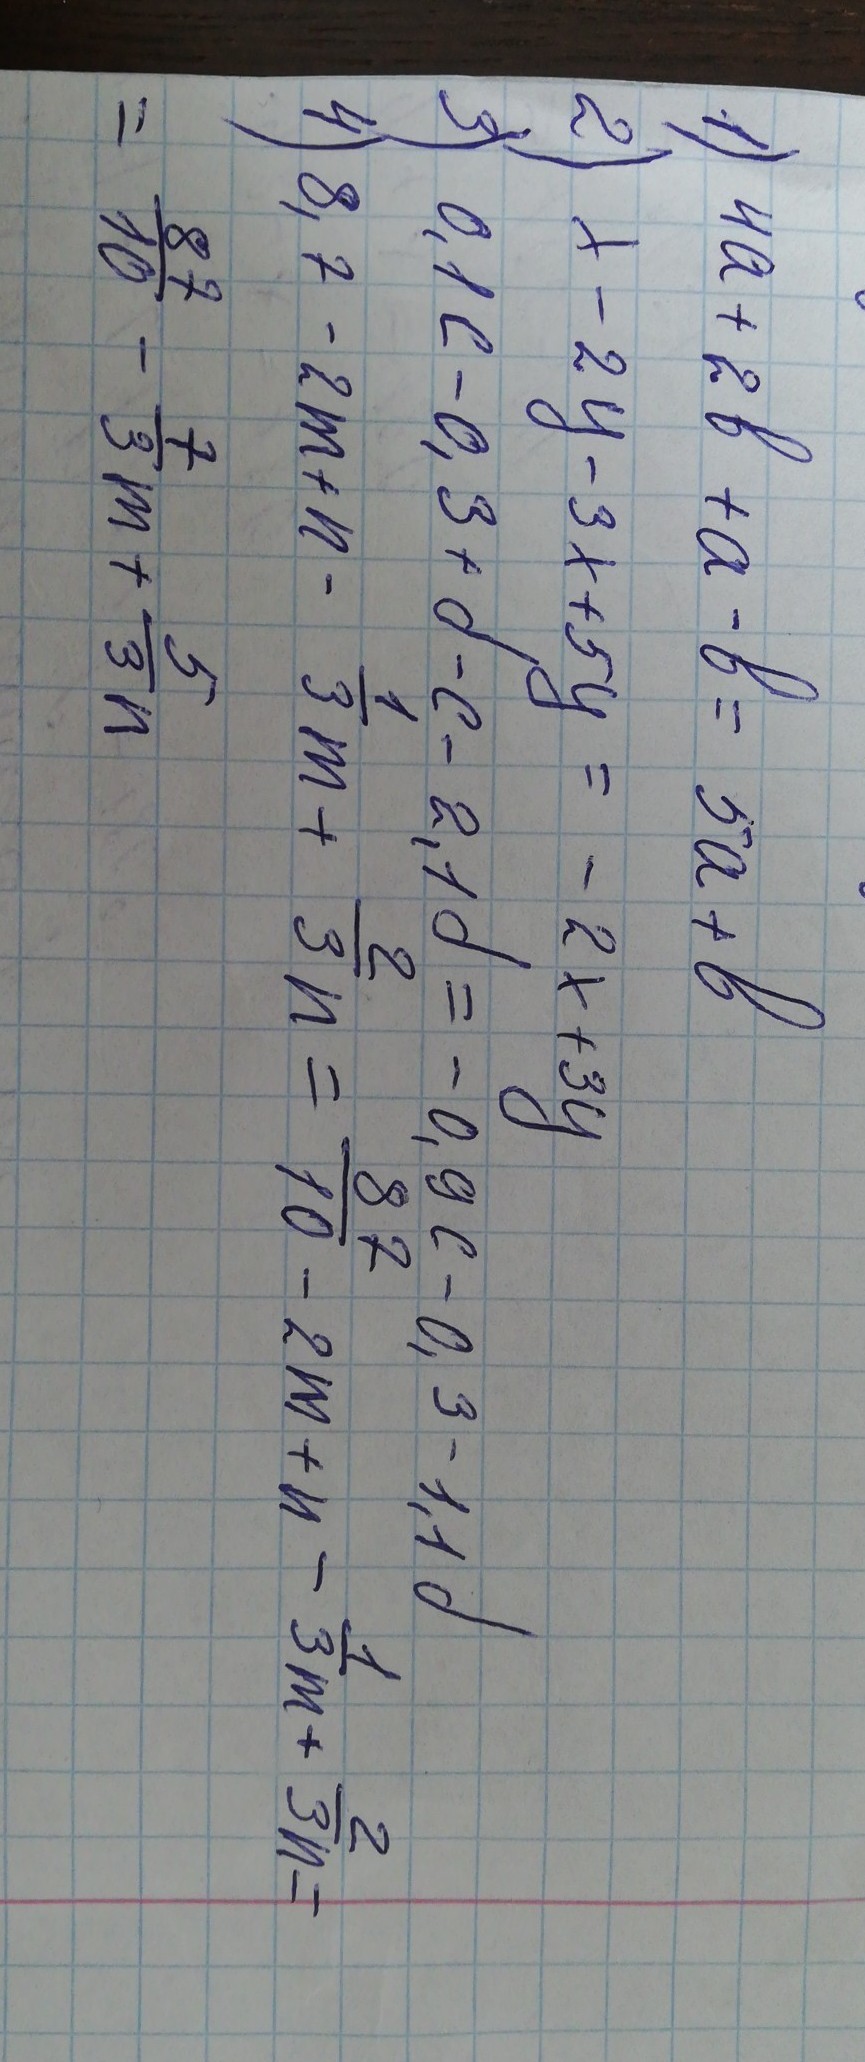 1) 4a + 2b + a - b = 5a + b
2) x - 2y - 3x + 5y = - 2x + 3y
3) 0,1c - 0,3 + d - c - 2,1d = - 0,9c - 0,3 - 1,1d
4) 8,7 - 2m + n - 1/3 m + 2/3 n = 87/10 - 2m + n - 1/3 m + 2/3 n =
= 87/10 - 7/3 m + 5/3 n